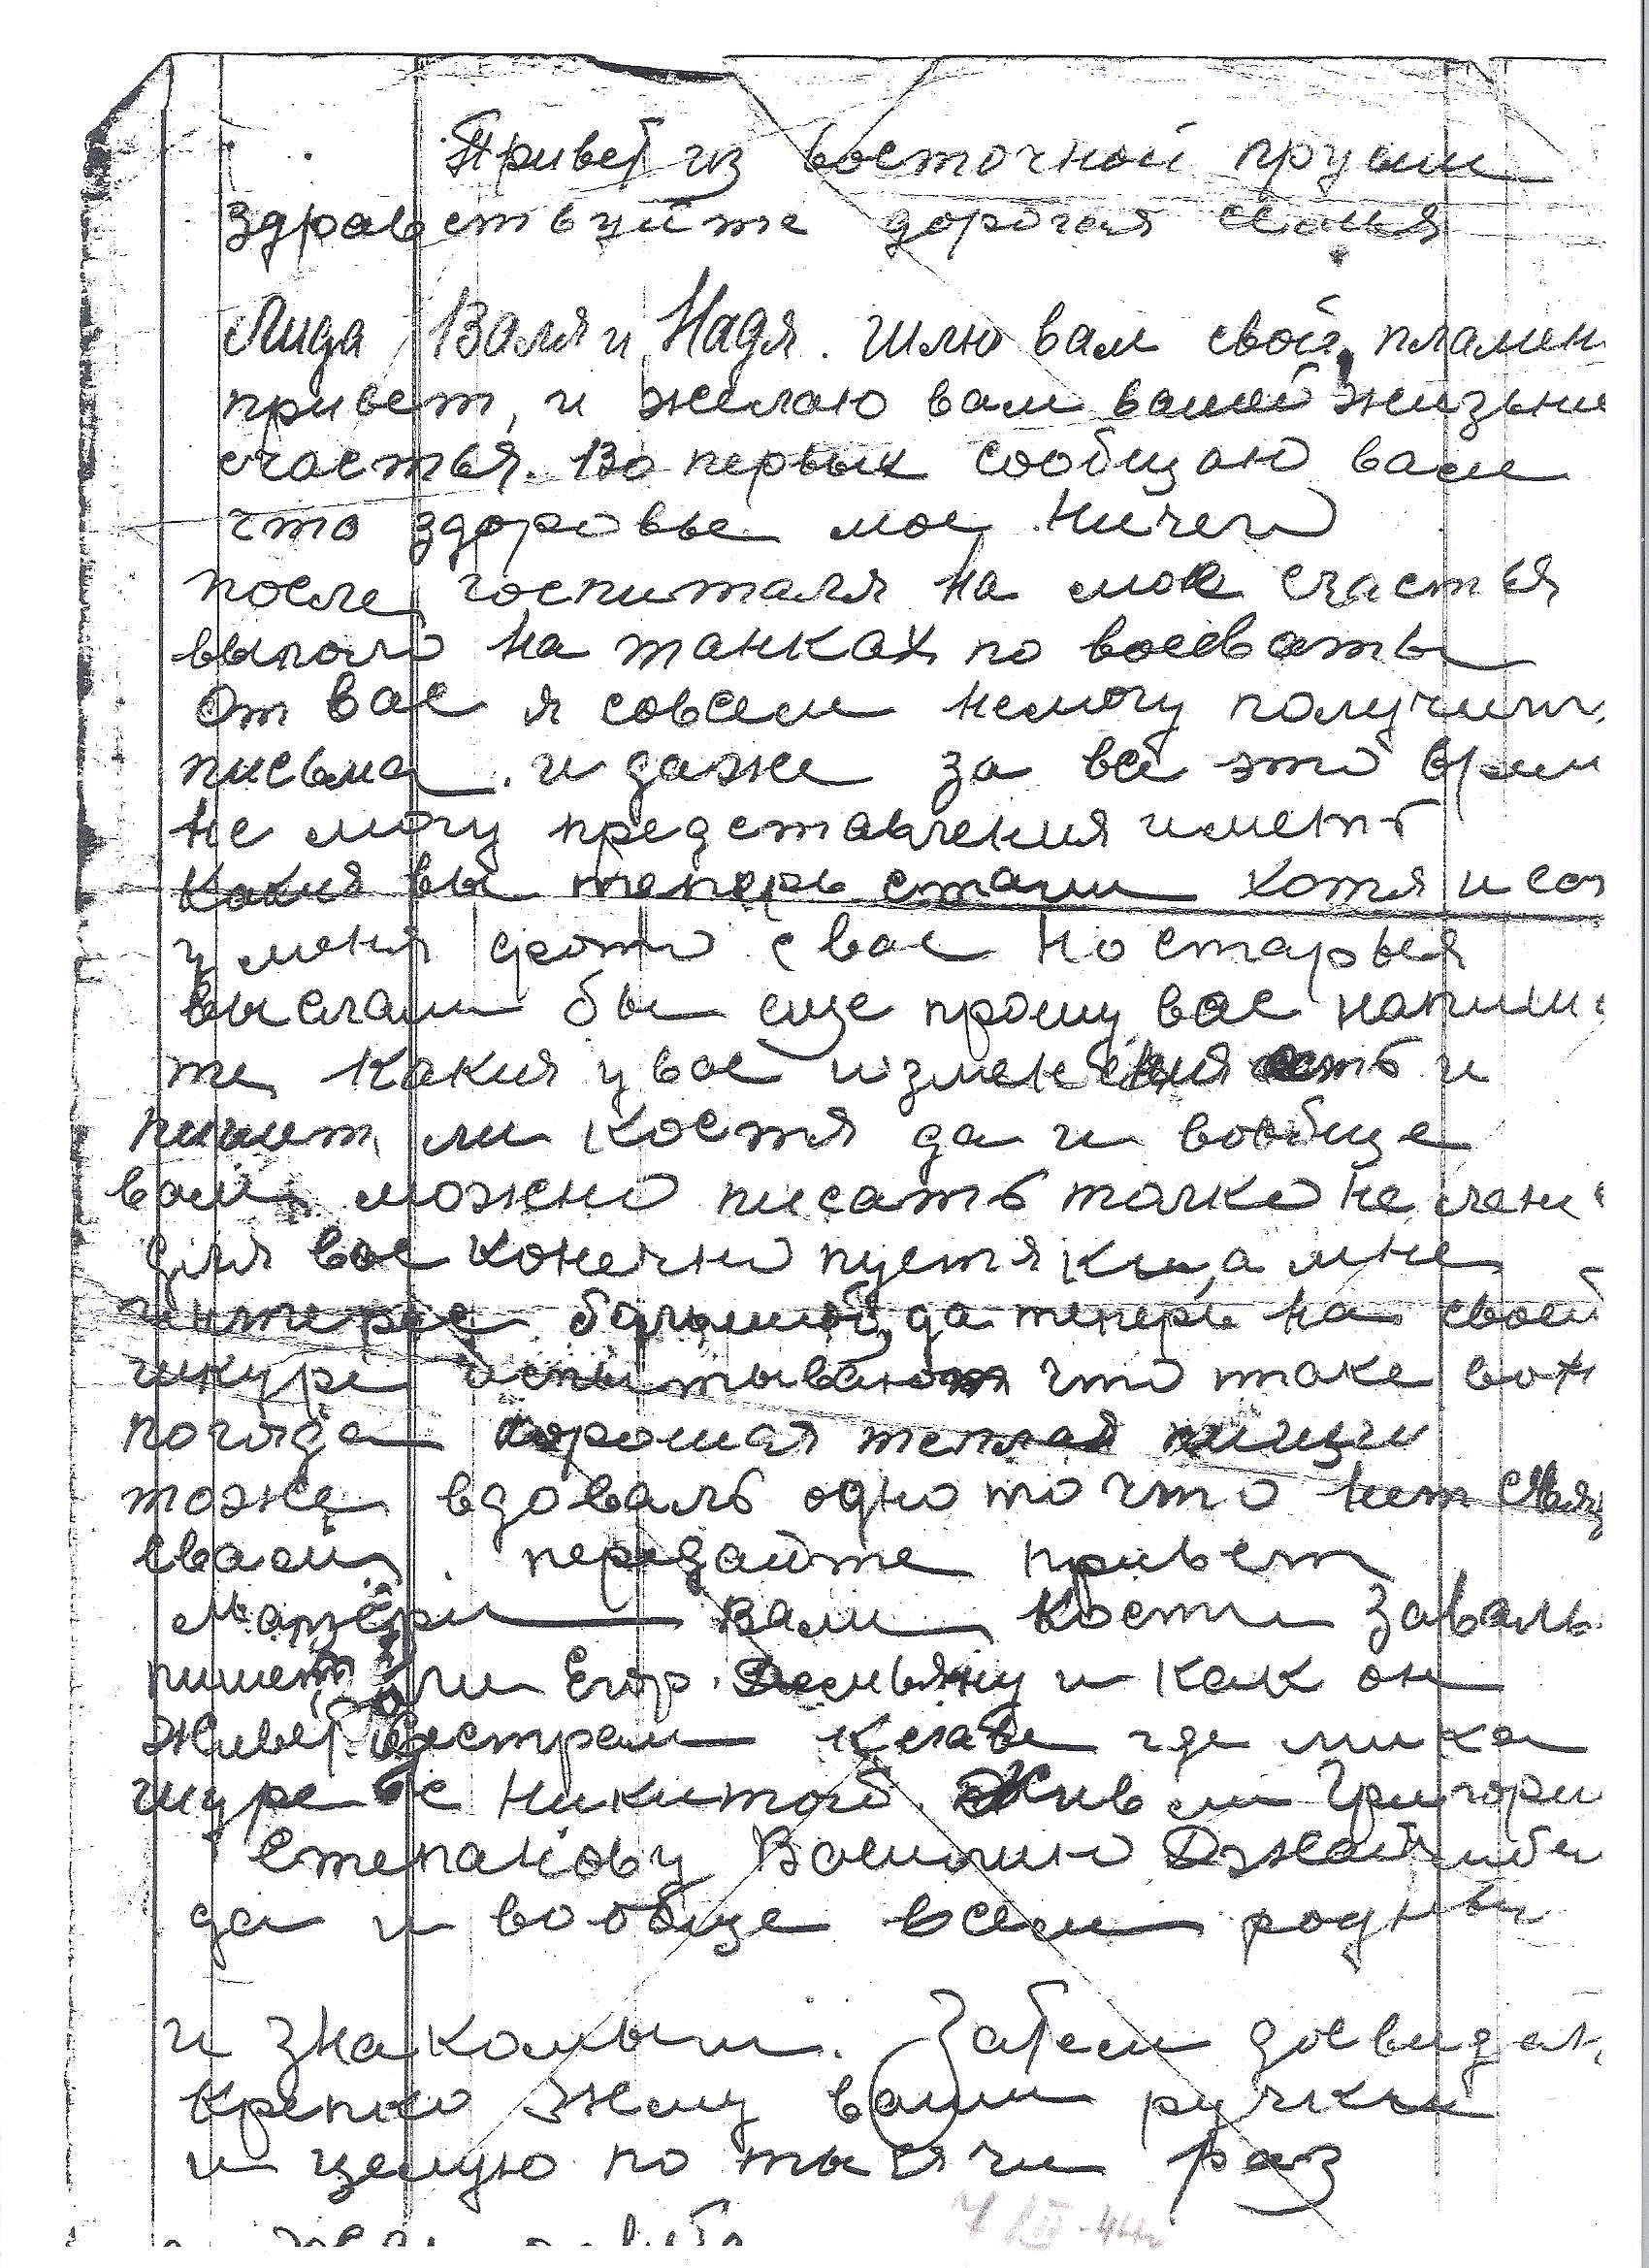 Привет из восточной пруссии
Здравствуйте дорогая семья
Лида Валя и Надя. Шлю вам свой пламен
привет, и желаю вам вашей жизьни
счастья. Во первых сообщаю вам
что здоровье мое ничего
после госпиталя на мое счастья
выпало на танках по воевать
От вас я совсем немогу получить
письма. и даже за всё это врем
не могу представления иметь
Какия вы теперь стали хотя и ест
у меня фото с вас но старыя
выслали бы еще прошу вас напиши
те какия у вас изменения есть и
пишет ли Костя да и вообще
вам можно писать толко не лени
для вас конечно пустяки, а мне
интерес большой, да теперь на своей
шкуре испытываю что таке вой
погода хорошая теплая пищи
тоже вдоваль одно то что нет связ
свами. передайте привет
Вали Кости
пишет ли Егор. Демьяну и как он
живет. Сестрам Клаве где мика
шуре с Никитой Жив ли Григори
Степанову Василию
да и вообще всем родным
и знакомым. Затем досвидан
крепко жму ваши ручки
и целую по тысячи раз